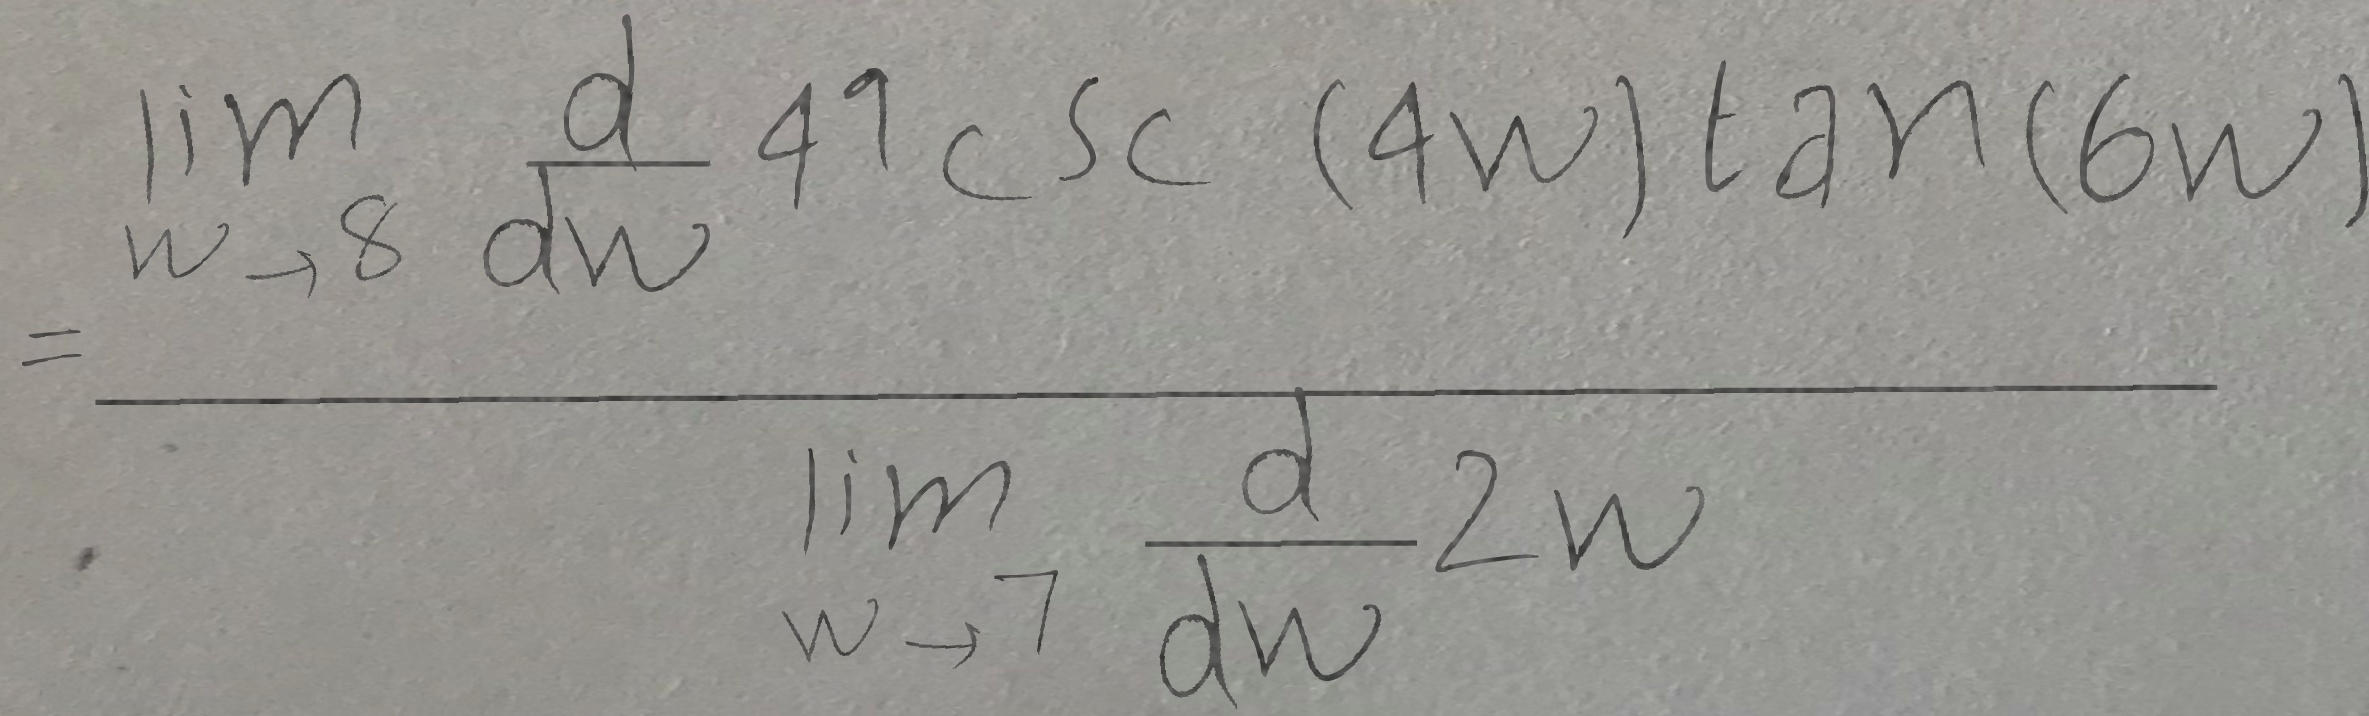 = \frac{\lim_{w \to 8} \frac{d}{dw} 49 \csc(4w) \tan(6w)}{\lim_{w \to 7} \frac{d}{dw} 2w}